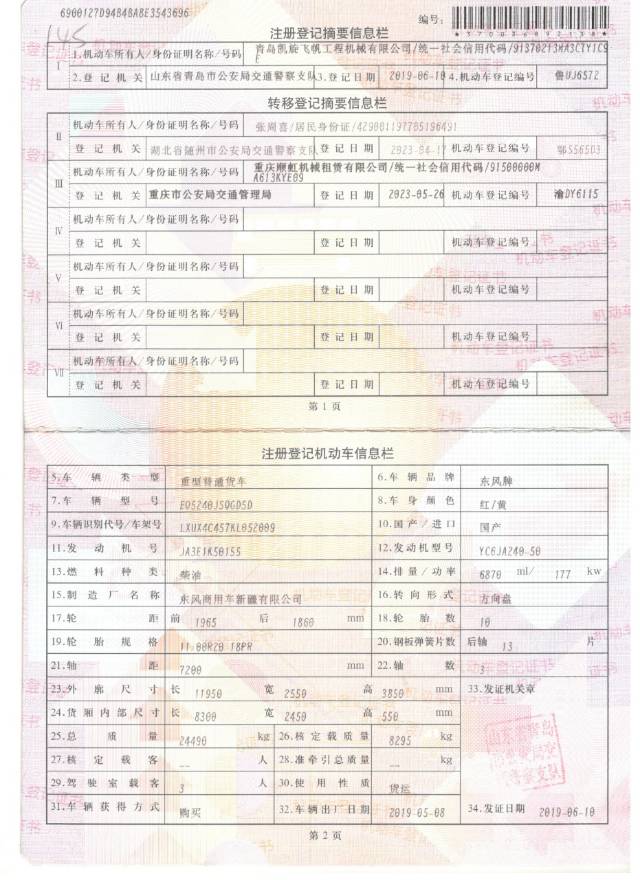 6900127D94B4BABE3543696
145
编号:
*370036892138*
注册登记摘要信息栏
I
1.机动车所有人/身份证明名称/号码 青岛凯旋飞帆工程机械有限公司/统一社会信用代码/91370213MA3CTY1C9E
2.登记机关 山东省青岛市公安局交通警察支队 3.登记日期 2019-06-10 4.机动车登记编号 鲁UJ6S72
转移登记摘要信息栏
II
机动车所有人/身份证明名称/号码 张周喜/居民身份证/429001197705196491
登记机关 湖北省随州市公安局交通警察支队 登记日期 2023-04-17 机动车登记编号 鄂S565D3
III
机动车所有人/身份证明名称/号码 重庆顺虹机械租赁有限公司/统一社会信用代码/91500000MA613KYE09
登记机关 重庆市公安局交通管理局 登记日期 2023-05-26 机动车登记编号 渝DY6115
IV
机动车所有人/身份证明名称/号码
登记机关 登记日期 机动车登记编号
V
机动车所有人/身份证明名称/号码
登记机关 登记日期 机动车登记编号
VI
机动车所有人/身份证明名称/号码
登记机关 登记日期 机动车登记编号
VII
机动车所有人/身份证明名称/号码
登记机关 登记日期 机动车登记编号
第1页
注册登记机动车信息栏
5.车辆类型 重型普通货车 6.车辆品牌 东风牌
7.车辆型号 EQ5240JSQGD5D 8.车身颜色 红/黄
9.车辆识别代号/车架号 LXUX4C457KL052009 10.国产/进口 国产
11.发动机号 JA3E1K50155 12.发动机型号 YC6JA240-50
13.燃料种类 柴油 14.排量/功率 6870 ml/ 177 kw
15.制造厂名称 东风商用车新疆有限公司 16.转向形式 方向盘
17.轮距 前 1965 后 1860 mm 18.轮胎数 10
19.轮胎规格 11.00R20 18PR 20.钢板弹簧片数 后轴 13 片
21.轴距 7200 mm 22.轴数 3
23.外廓尺寸 长 11950 宽 2550 高 3850 mm 33.发证机关章
24.货厢内部尺寸 长 8300 宽 2450 高 550 mm
25.总质量 24490 kg 26.核定载质量 8295 kg
27.核定载客 -- 人 28.准牵引总质量 -- kg
29.驾驶室载客 3 人 30.使用性质 货运
31.车辆获得方式 购买 32.车辆出厂日期 2019-05-08 34.发证日期 2019-06-10
第2页